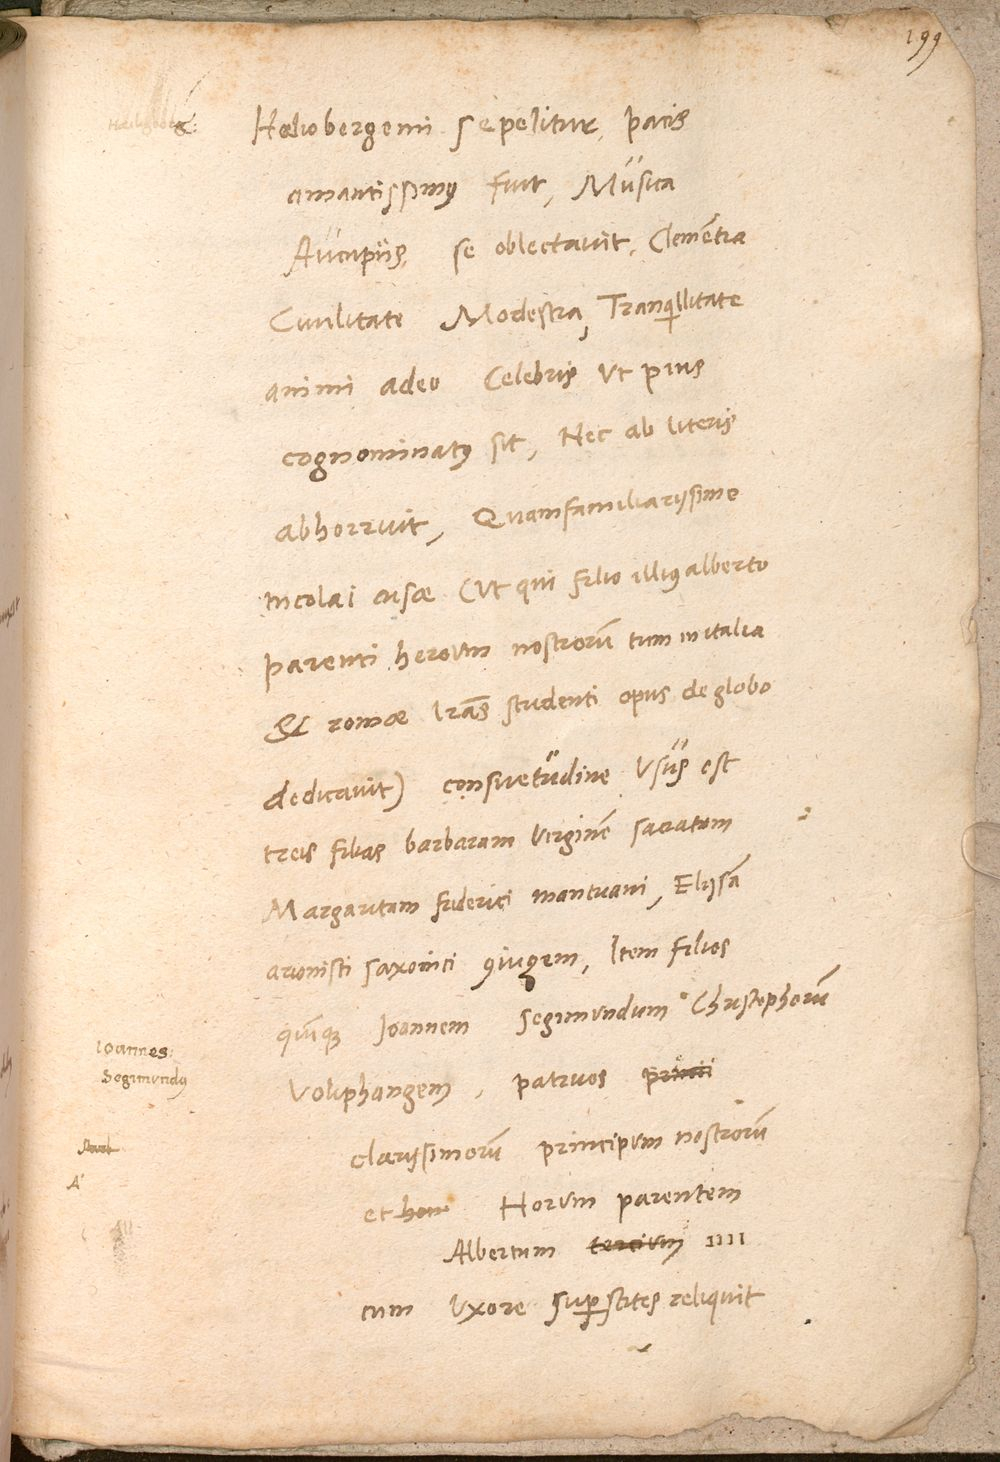 199
Hæliobergemi sepelitur, pacis
amantissimꝰ fuit, Musica
Aucupiis, se oblectauit, Clemẽtia
Ciuilitate Modestia, Tranqillitate
animi adeo Celebris vt pius
cognominatꝰ sit, Nec ab literis
abhorruit, Quamfamiliarissime
nicolai cusæ (vt qui filio illiꝰ alberto
parenti heroum nostrorũ tum in italia
& romæ lrãs studenti opus de globo
dedicauit) consuetudine Vsus est
treis filias barbaram virginẽ sacratam
Margaritam friderici mantuani, Elisã
arionisti saxonici ꝯiugem, Item filios
quĩqꝫ Ioannem Segimundum Christophorũ
Voluphangem, patruos princi
clarissimorũ principum nostrorũ
et horu Horum parentem
Albertum tercium IIII
cum vxore suꝑstites reliquit
Ioannes
Segimundꝰ
A